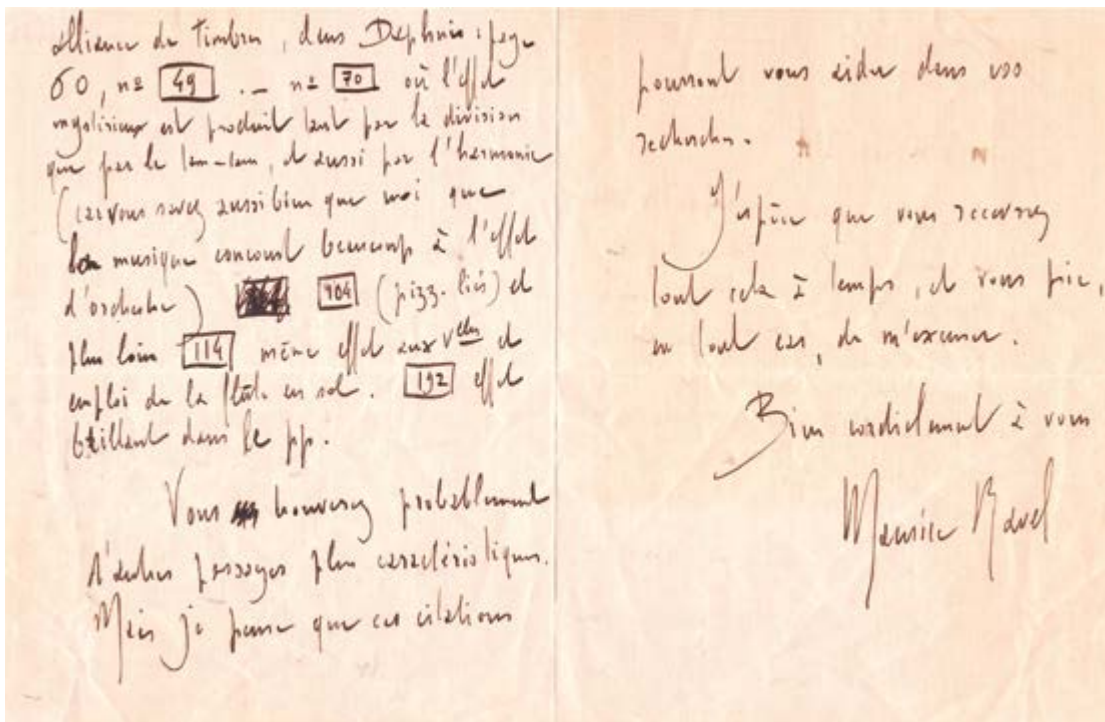 alliance de timbres, dans Daphnis : page
60, nº 49 . _ nº 70 où l'effet
mystérieux est produit tant par la division
que par le tam-tam, et aussi par l'harmonie
(car vous savez aussi bien que moi que
la musique concourt beaucoup à l'effet
d'orchestre) 104 (pizz. liés) et
plus loin 114 même effet aux Velles et
emploi de la flûte en sol. 192 effet
brillant dans le pp.
Vous trouverez probablement
d'autres passages plus caractéristiques.
Mais je pense que ces citations
pourront vous aider dans vos
recherches.
J'espère que vous recevrez
tout cela à temps, et vous prie,
en tout cas, de m'excuser.
Bien cordialement à vous
Maurice Ravel